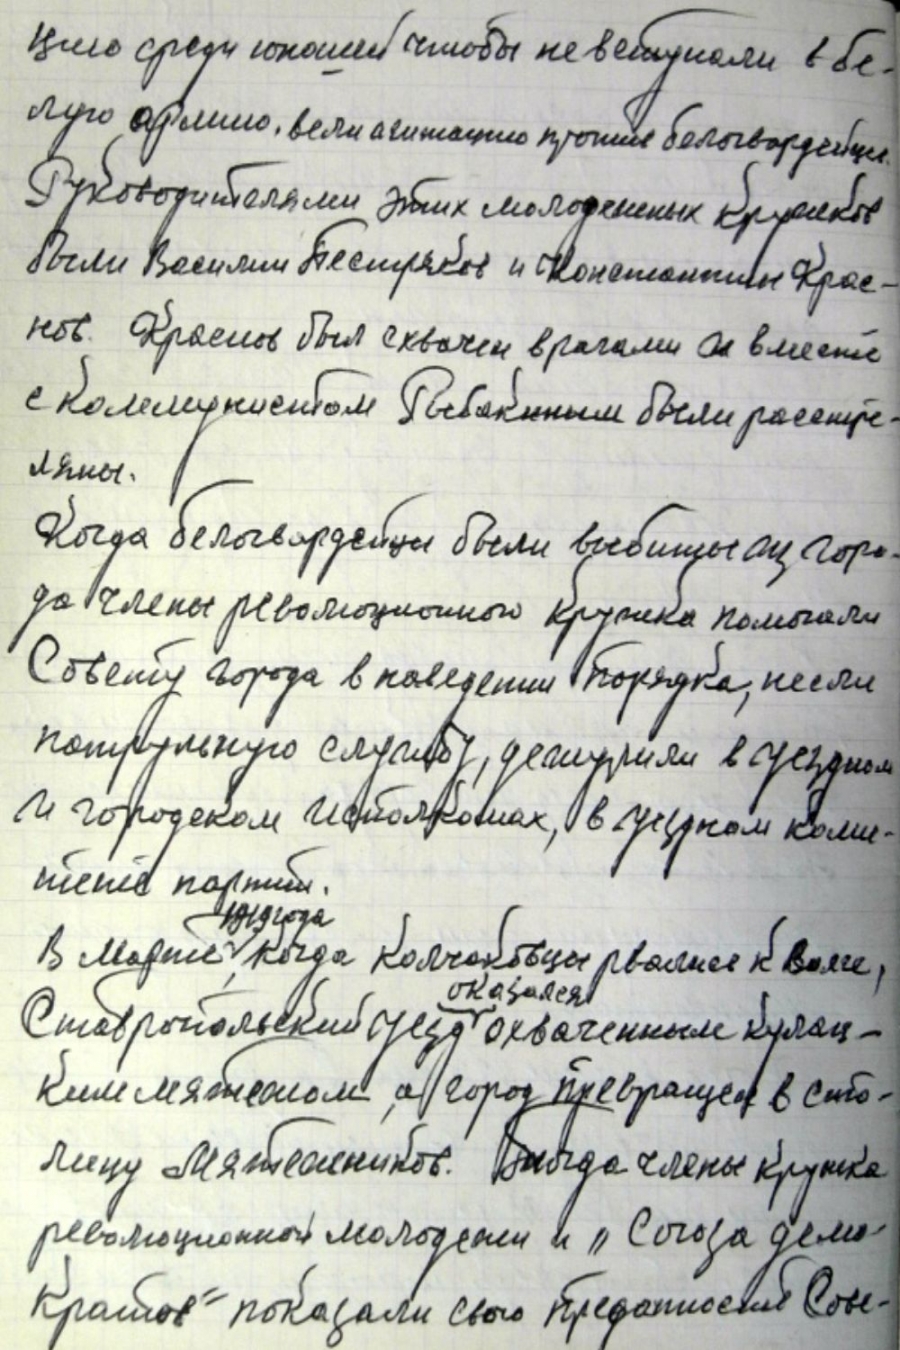 цию среди юношей чтобы не вступали в бе-
лую армию, вели агитацию против белогвардейцев.
Руководителями этих молодежных кружков
были Василий Пестряков и Константин Крас-
нов. Краснов был схвачен врагами и вместе
с коммунистом Рыбакиным были расстре-
ляны.
Когда белогвардейцы были выбиты из горо-
да члены революционного кружка помогали
Совету города в наведении порядка, несли
патрульную службу, дежурили в уездном
и городском исполкомах, в уездном коми-
тете партии.
1919 года
В марте, когда колчаковцы рвались к Волге,
оказался
Ставропольский уезд охваченным кулац-
ким мятежом, а город превращен в сто-
лицу мятежников. Тогда члены кружка
революционной молодежи и "Союза демо-
кратов" показали свою преданность Сове-